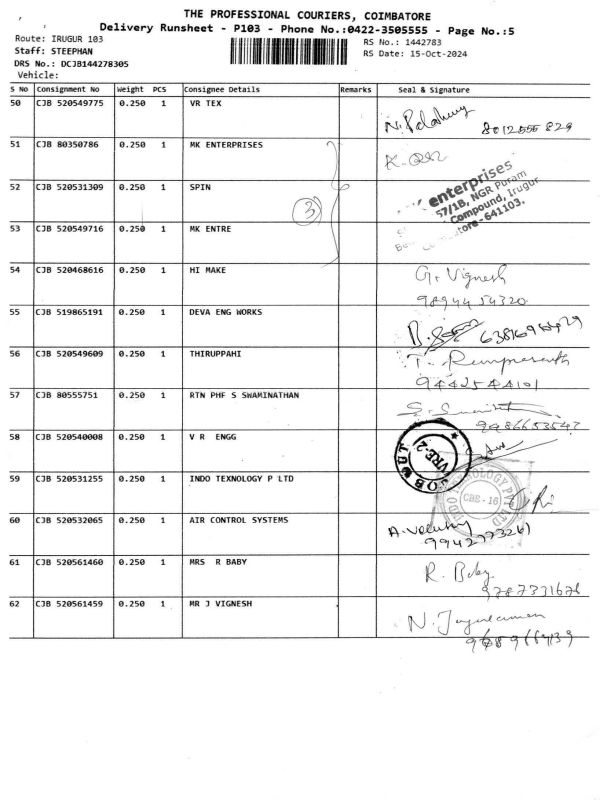 THE PROFESSIONAL COURIERS, COIMBATORE
Delivery Runsheet - P103 - Phone No.:0422-3505555 - Page No.:5
Route: IRUGUR 103
RS No.: 1442783
Staff: STEEPHAN
RS Date: 15-Oct-2024
DRS No.: DCJB144278305
Vehicle:
S No Consignment No Weight PCS Consignee Details Remarks Seal & Signature
50 CJB 520549775 0.250 1 VR TEX
8012555829
51 CJB 80350786 0.250 1 MK ENTERPRISES
52 CJB 520531309 0.250 1 SPIN
3
enterprises
57/1B, NGR Puram
Compound, Irugur
641103.
53 CJB 520549716 0.250 1 MK ENTRE
54 CJB 520468616 0.250 1 HI MAKE
G. Vignesh
9894454320
55 CJB 519865191 0.250 1 DEVA ENG WORKS
56 CJB 520549609 0.250 1 THIRUPPAHI
T. Ramprasath
9442544101
57 CJB 80555751 0.250 1 RTN PHF S SWAMINATHAN
9486653542
58 CJB 520540008 0.250 1 V R ENGG
JOB OUT
VRE-2
59 CJB 520531255 0.250 1 INDO TEXNOLOGY P LTD
INDO TECHNOLOGY PVT LTD
CBE-16
60 CJB 520532065 0.250 1 AIR CONTROL SYSTEMS
9942773261
61 CJB 520561460 0.250 1 MRS R BABY
R. Baby
9787331676
62 CJB 520561459 0.250 1 MR J VIGNESH